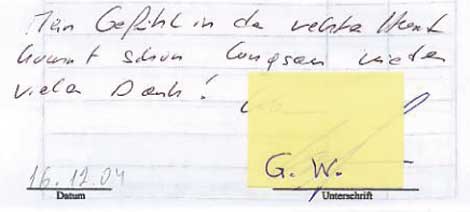 Mein Gefühl in der rechten Hand
kommt schon langsam wieder
vielen Dank!
G. W.
16.12.04
Datum Unterschrift